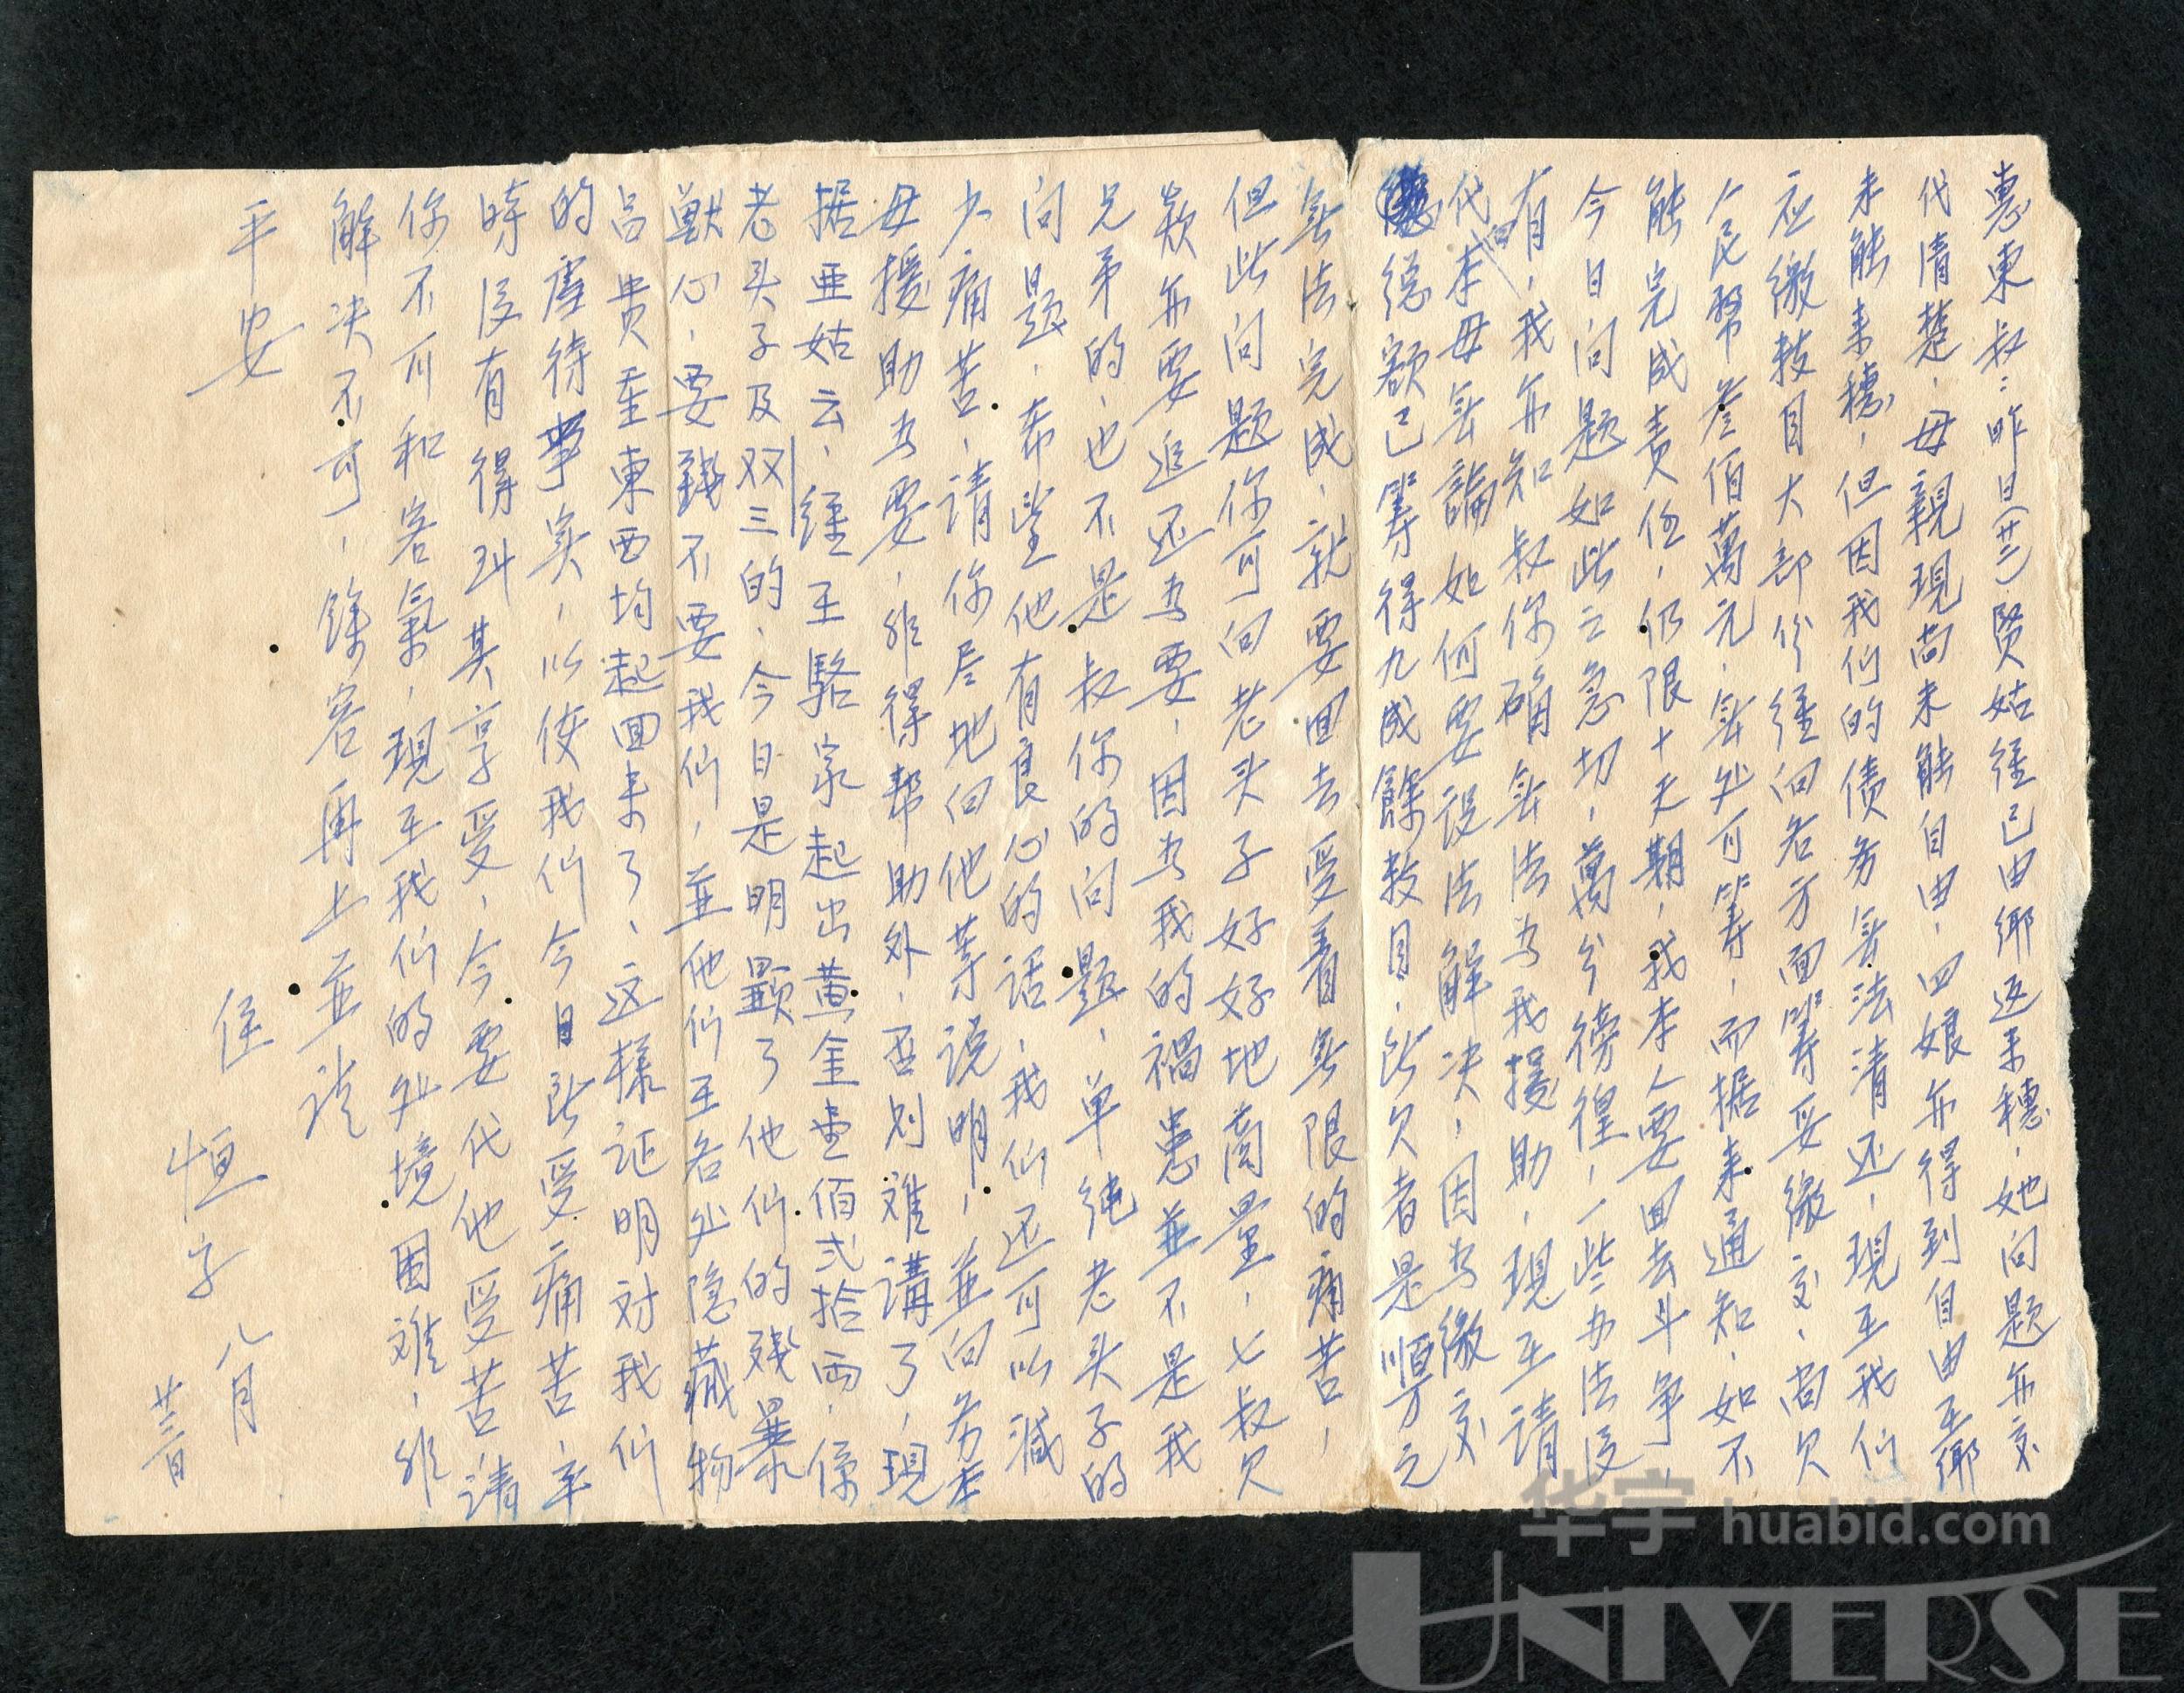 惠東叔：昨日(廿二)賢姑徑已由鄉返来穗，她向題亦交
代清楚，母親現尚未能自由，四娘亦得到自由至鄉
未能来穗，但因我们的债务無法清还，現至我们
应缴数目大部份徑向各方面筹妥缴交，尚欠
人民幣叁佰萬元，無处可筹，而据来通知，如不
能完成责任，仍限十天期，我本人要回去斗争，
今日问题如此之急切，萬分徬徨，一些办法没
有，我亦知叔你确無法为我援助，現至請
代向李母無論如何要设法解决，因为缴交
總额已筹得九成餘数目，所欠者是順方之
無法完成，就要回去受着無限的痛苦，
但此问题你可向老头子好好地商量，七叔欠
款亦要追还为要，因为我的禍患並不是我
兄弟的，也不是叔你的问题，单純老头子的
问题，希望他有良心的话，我们还可以减
少痛苦，请你尽地向他等说明，並向务本
母援助为要，能得帮助外，否则难講了，現
据亚姑云，徑至駱家起出黄金壹佰弍拾两，係
老头子及双三的，今日是明顯了他们的残暴
獸心，要錢不要我们，並他们至各处隐藏物
品贵重東西均起回来了，这樣证明对我们
的虐待事实，以使我们今日所受痛苦，平
時没有得到其享受，今要代他受苦请
你不可和客氣，現至我们的处境困难，非
解决不可，餘容再上並頌
平安
侄 恒字 八月
廿三日
华宇 huabid.com
UNIVERSE